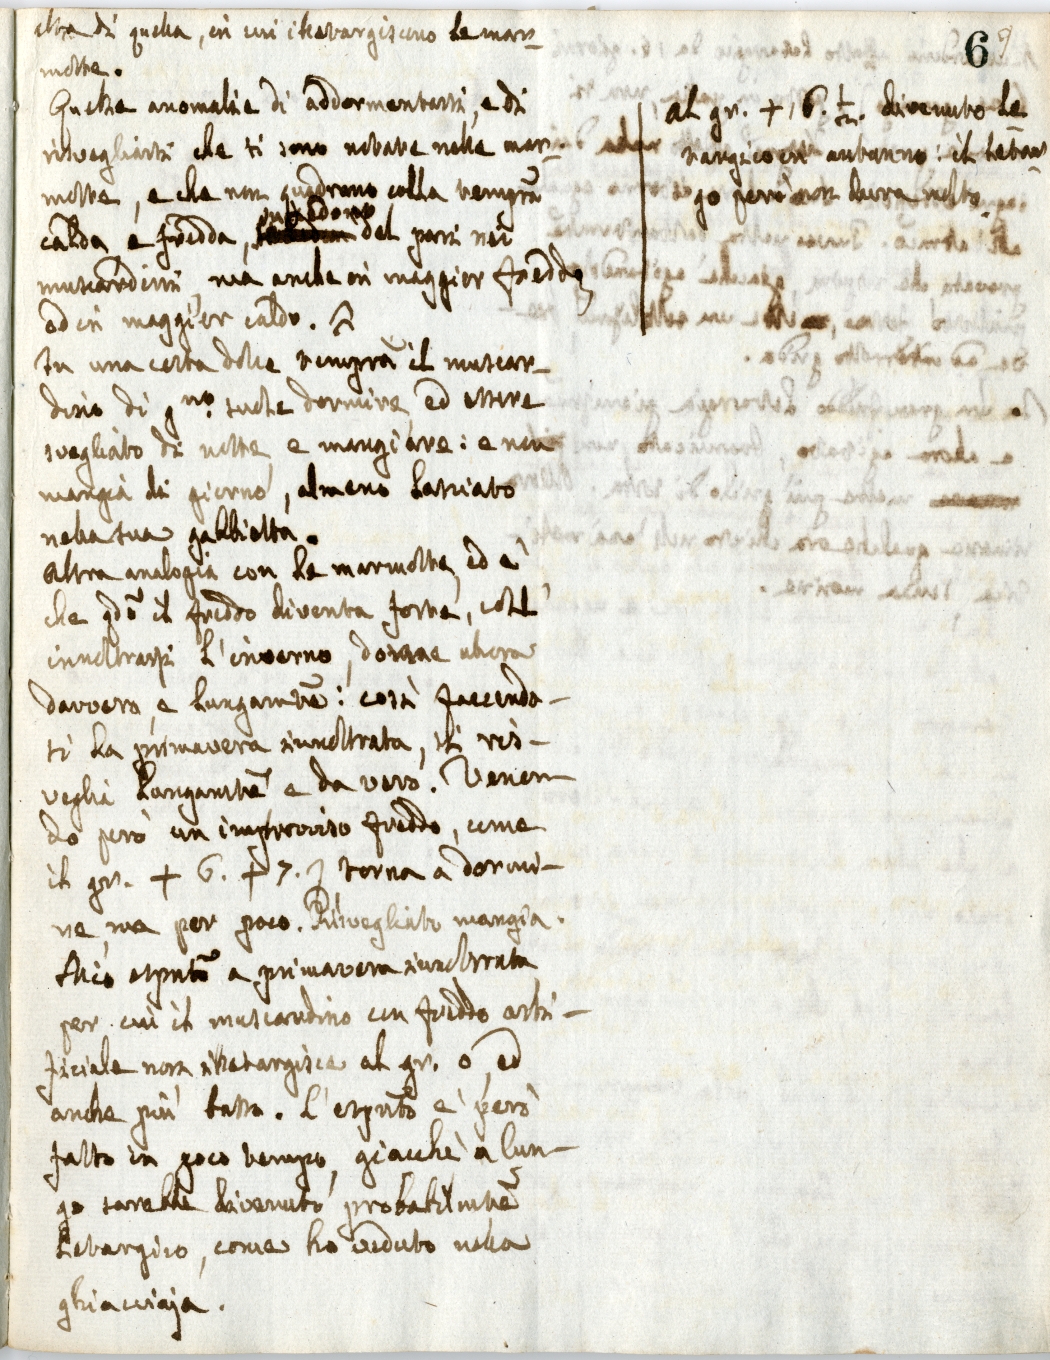 69
altra di quella, in cui iletargiscono le mar-
motte.
Quelle anomalie di addormentarsi, e di
risvegliarsi che si sono notate nelle mar-
motte, e che non quadrano colla tempra
calda e fredda, succedono del pari nei
muscardini ma anche in maggior freddo,
ed in maggior caldo.
In una certa dolce tempra il muscar-
dino di gno suole dormire, ed essere
svegliato di notte, e mangiare: e non
mangia di giorno, almeno lasciato
nella sua gabbietta.
Altra analogia con le marmotte, ed è
che qdo il freddo diventa forte, coll'
innoltrarsi l'inverno, dorme allora
davvero, e lungamte: così facendo-
si la primavera innoltrata, si ris-
veglia lungamte e da vero. Venen-
do però un improvviso freddo, come
il gr. + 6. + 7. torna a dormi-
re, ma per poco. Risvegliato mangia.
Mio esprto a primavera innoltrata
per cui il muscardino con freddo arti-
ficiale non iletargisce al gr. 0, ed
anche più basso. L'esprto è però
fatto in poco tempo, giacchè a lun-
go sarebbe divenuto probabilmte
letargico, come ho veduto nella
ghiacciaja.
al gr. + 6. 1/2. divenuto le-
targico in autunno: il letar-
go però non dura molto.